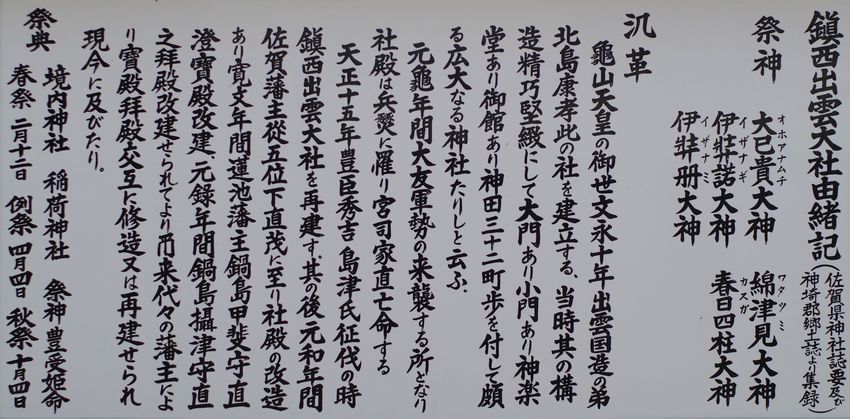 鎮西出雲大社由緒記(佐賀県神社誌要及び
神埼郡郷土誌より集録)
祭神
大己貴大神 綿津見大神
オホアナムチ ワタツミ
伊弉諾大神 春日四柱大神
イザナギ カスガ
伊弉冊大神
イザナミ
沿革
亀山天皇の御世文永十年出雲国造の弟
北島康孝此の社を建立する、当時其の構
造精巧堅緻にして大門あり小門あり神楽
堂あり御館あり神田三十二町歩を付して頗
る広大なる神社たりしと云ふ。
元亀年間大友軍勢の来襲する所となり
社殿は兵燹に罹り宮司家直亡命する
天正十五年豊臣秀吉島津氏征伐の時
鎮西出雲大社を再建す、其の後元和年間
佐賀藩主從五位下直茂に至り社殿の改造
あり寛文年間蓮池藩主鍋島甲斐守直
澄寶殿改建、元錄年間鍋島攝津守直
之拝殿改建せられてより尓来代々の藩主によ
り寶殿拝殿交互に修造又は再建せられ
現今に及びたり。
境内神社 稲荷神社 祭神 豊受姫命
祭典
春祭 二月十二日 例祭 四月四日 秋祭 十月四日